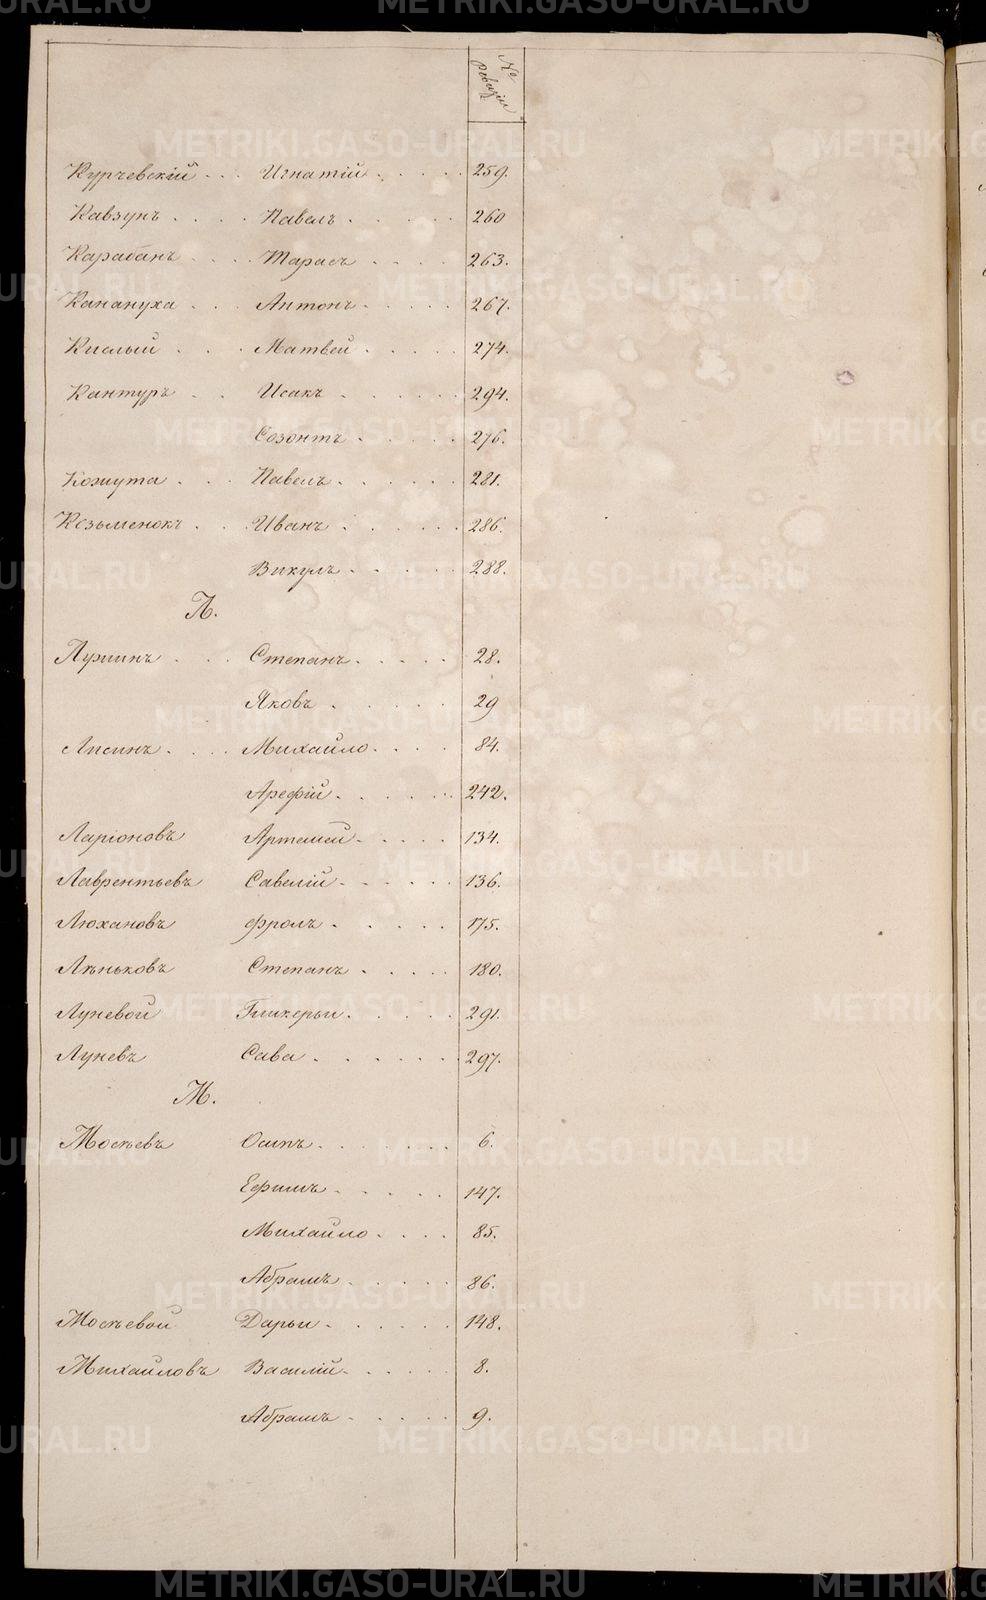 №
ревизіи
Курчевскій . . . Игнатій . . . . . 259.
Кавзунъ . . . . Павелъ . . . . . 260
Карабанъ . . . . Тарасъ . . . . 263.
Канануха . . . Антонъ . . . . . 267.
Кислый . . . Матвей . . . . . 274.
Кантуръ . . Исакъ . . . . . . 294.
Созонтъ . . . . . 276.
Кошута . . . Павелъ . . . . . . 281.
Козьменокъ . . . Иванъ . . . . . . 286.
Викулъ . . . . . 288.
Л.
Лушинъ . . . Степанъ . . . . . 28.
Яковъ . . . . . . 29
Лисинъ . . . . Михайло . . . . 84.
Арефій . . . . . . 242.
Ларіоновъ Артемій . . . . . 134.
Лаврентьевъ Савелій . . . . . . 136.
Люхановъ Фролъ . . . . . 175.
Леньковъ Степанъ . . . . . 180.
Луневой Гликерьи . . . . . 291.
Луневъ Сава . . . . . . 297.
М.
Мосѣевъ Осипъ . . . . . . 6.
Ефимъ . . . . . 147.
Михайло . . . . 85.
Абрамъ . . . . . 86.
Мосѣевой Дарьи . . . . . . 148.
Михайловъ Василій . . . . . 8.
Абрамъ . . . . . 9.
METRIKI.GASO-URAL.RU